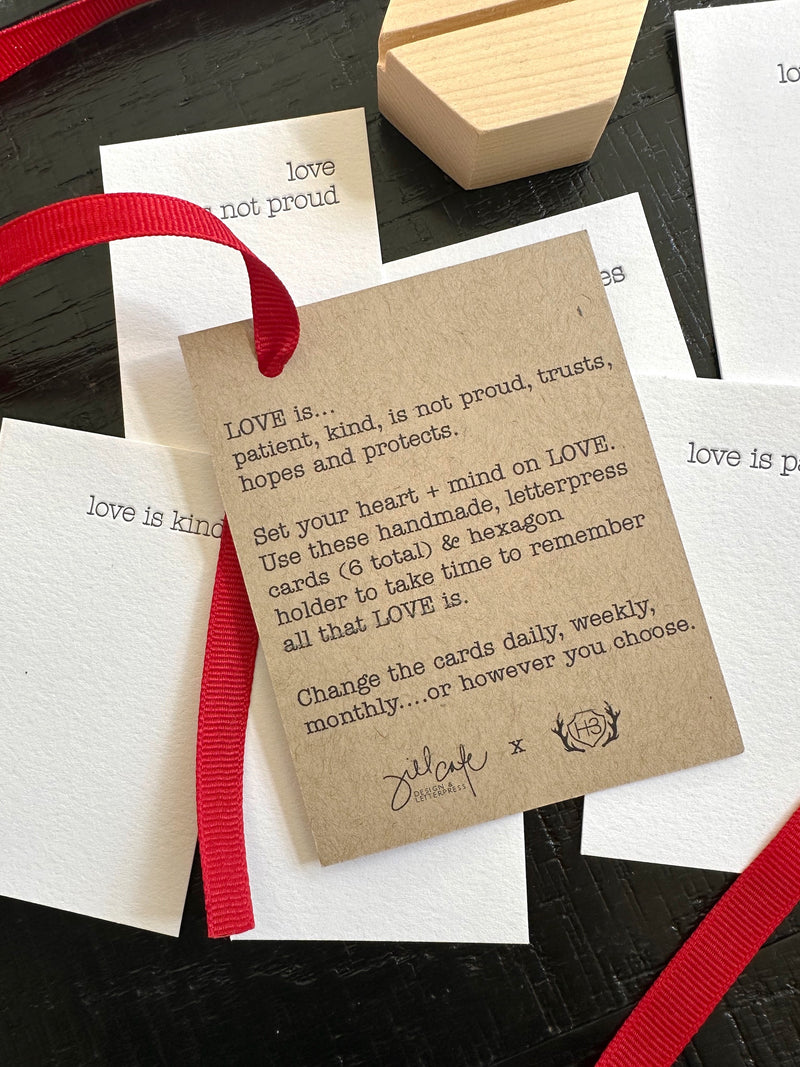 love
not proud
lo
es
love is pa
love is kind
LOVE is...
patient, kind, is not proud, trusts,
hopes and protects.
Set your heart + mind on LOVE.
Use these handmade, letterpress
cards (6 total) & hexagon
holder to take time to remember
all that LOVE is.
Change the cards daily, weekly,
monthly....or however you choose.
jill cafe
DESIGN &
LETTERPRESS
x
H3